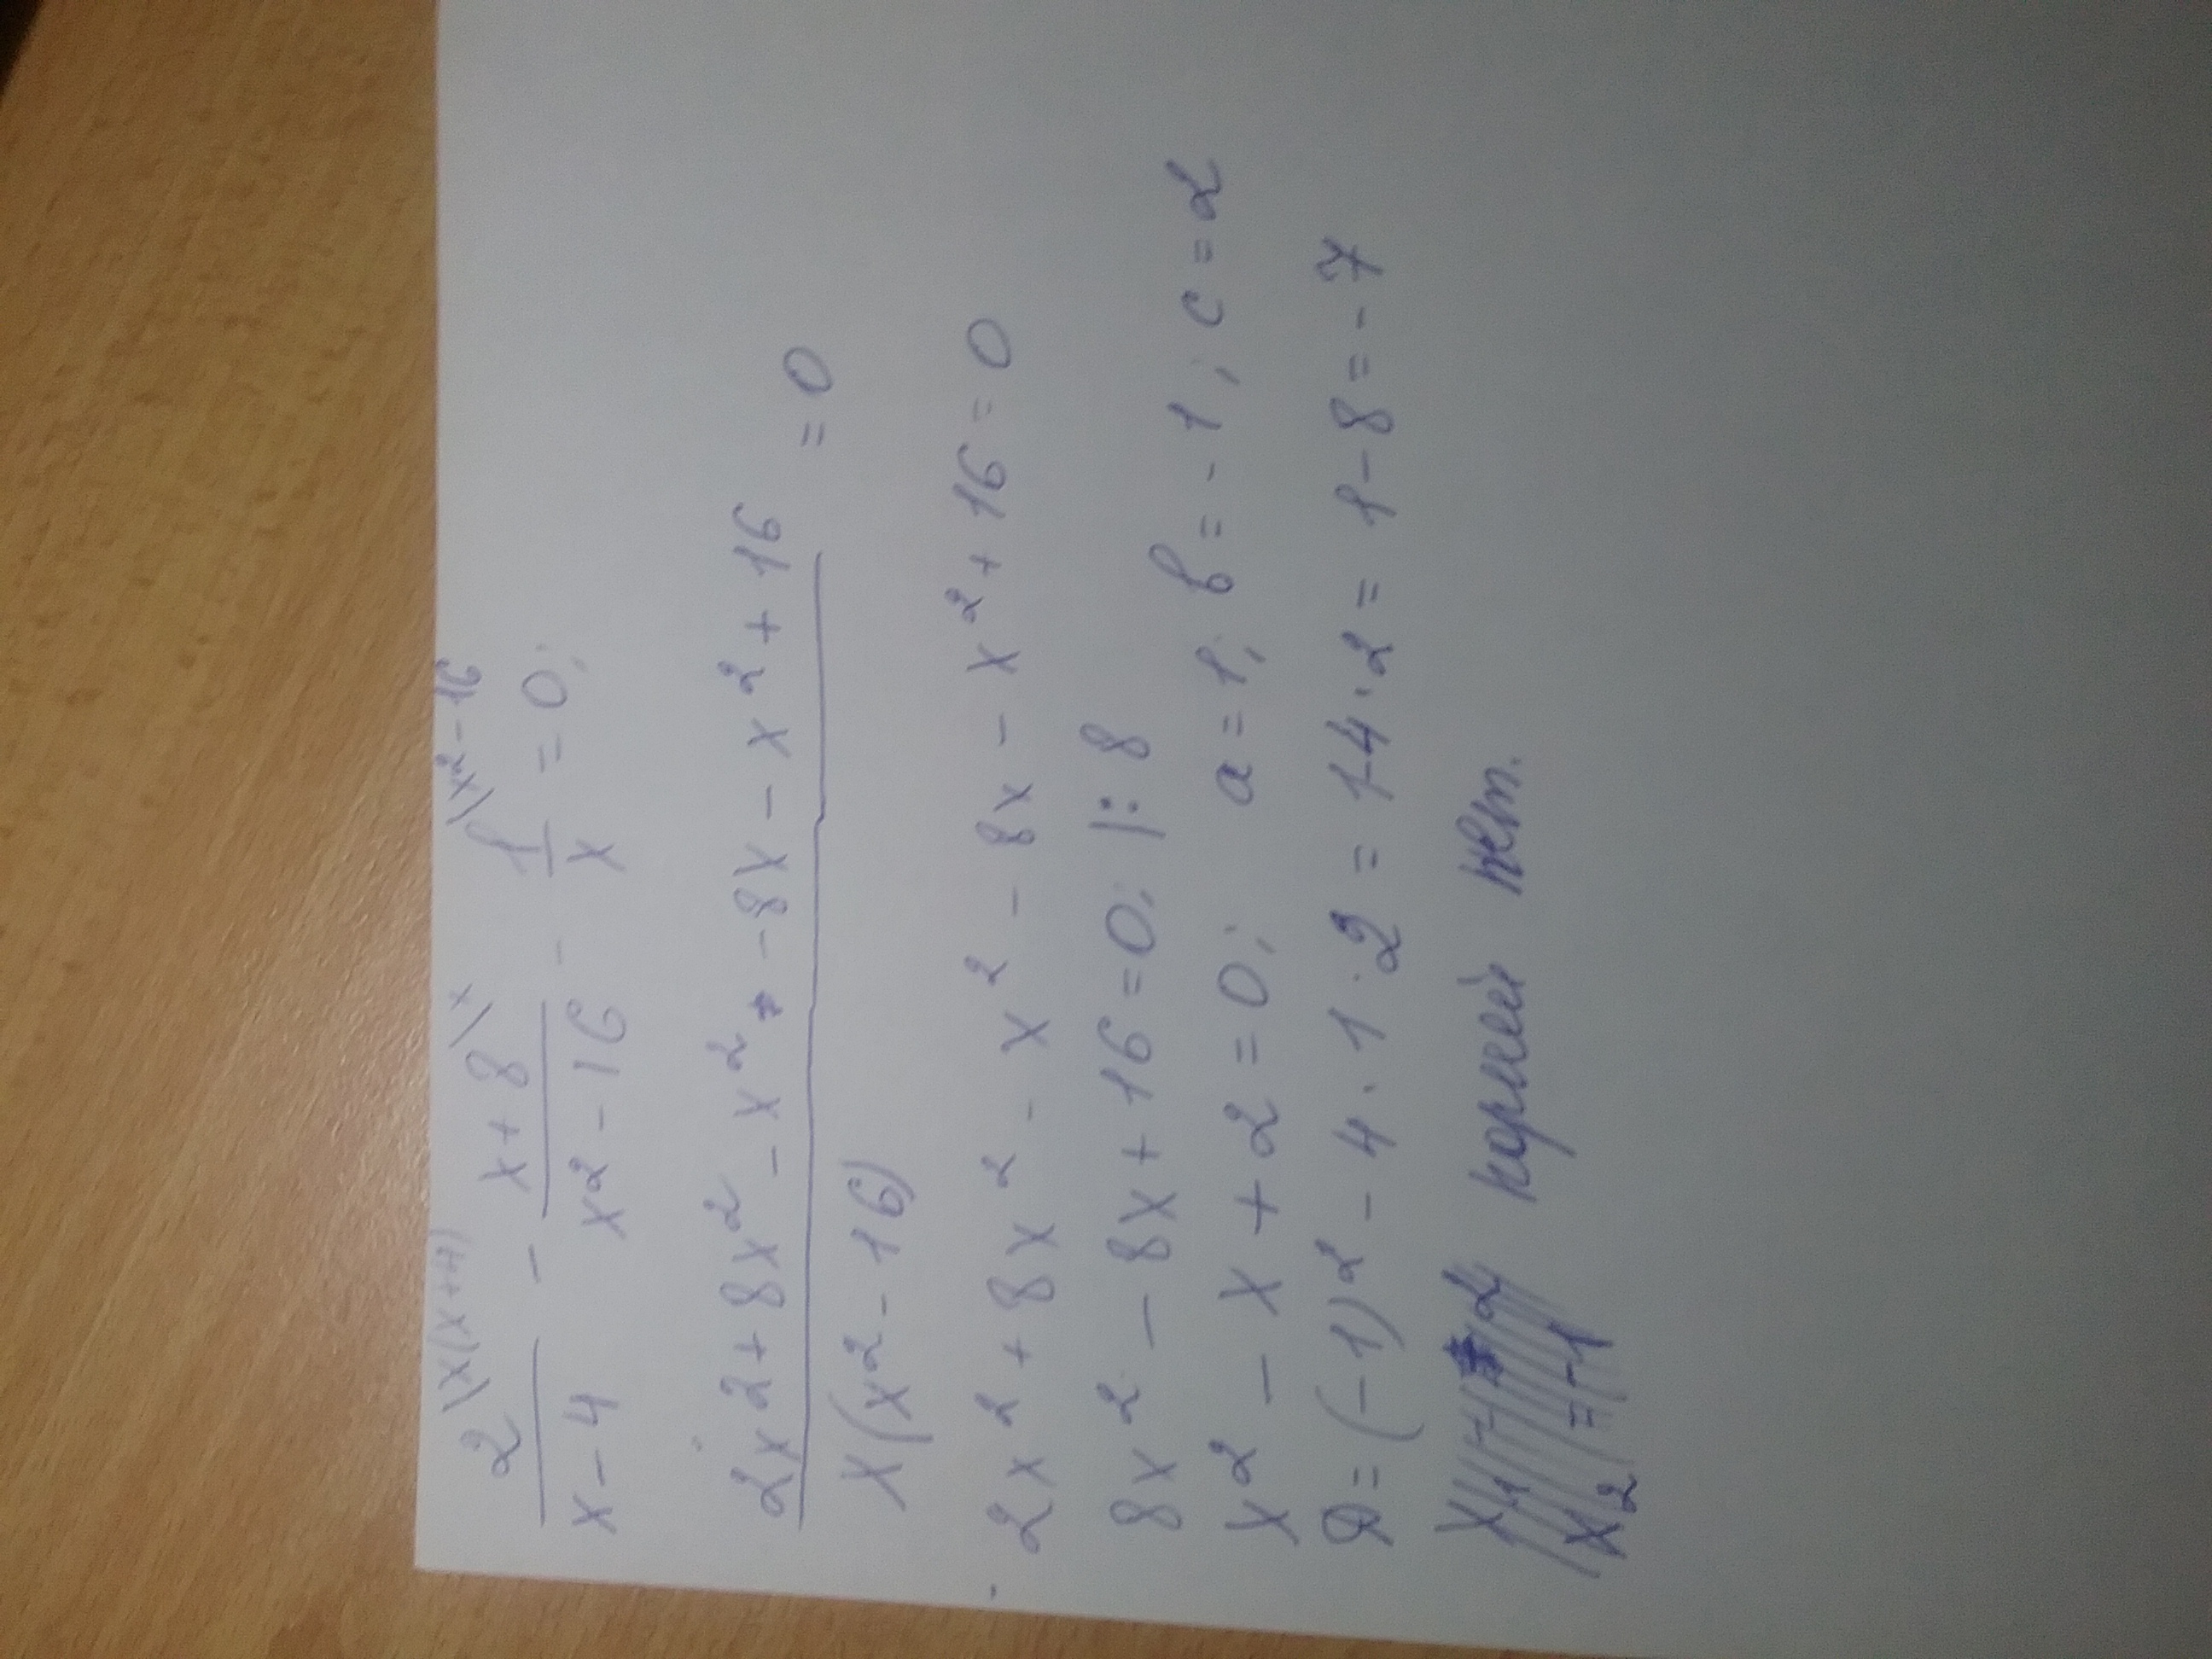 2\x(x+4) / x-4 - x+8\x / x²-16 - 1\x²-16 / x = 0;
2x²+8x²-x²-8x-x²+16 / x(x²-16) = 0
2x²+8x²-x²-8x-x²+16=0
8x²-8x+16=0; |:8
x²-x+2=0; a=1; b=-1; c=2
D=(-1)²-4·1·2=1-4·2=1-8=-7
корней нет.